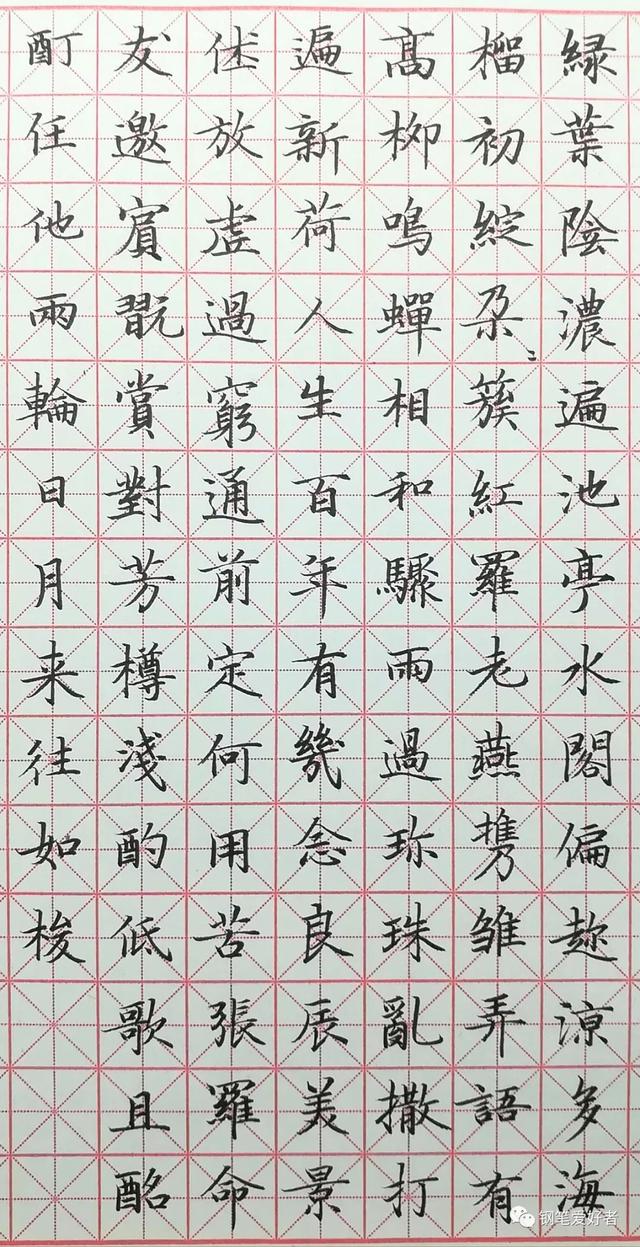 緑葉陰濃遍池亭水閣偏趂涼多海
榴初綻朵〻簇紅羅老燕携雏弄語有
髙柳鳴蟬相和驟雨過珎珠亂撒打
遍新荷人生百年有幾念良辰美景
休放虚過窮通前定何用苦張羅命
友邀賓翫賞對芳樽淺酌低歌且酩
酊任他兩輪日月来往如梭
钢笔爱好者